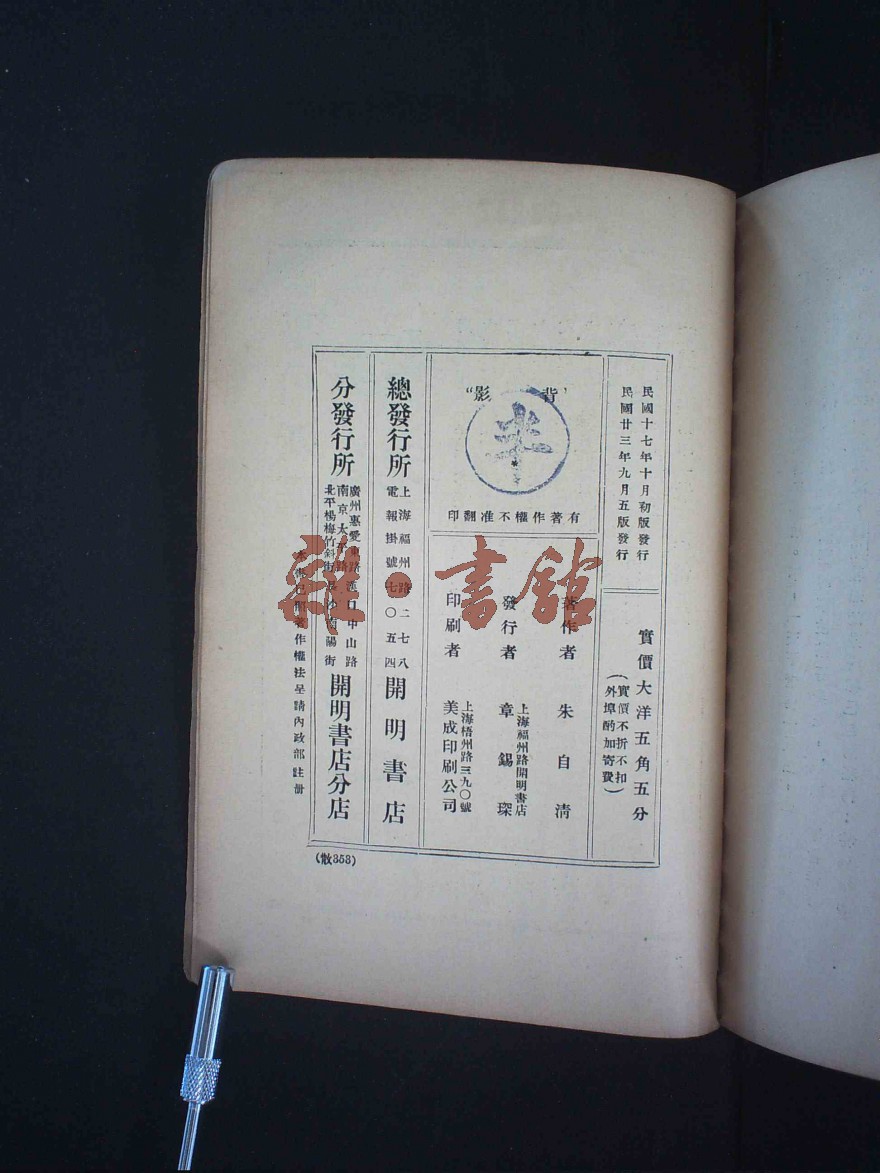 民國十七年十月初版發行
民國廿三年九月五版發行
實價大洋五角五分
(實價不折不扣
外埠酌加寄費)
"背影"
有著作權不准翻印
著作者 朱自清
發行者 上海福州路開明書店
章錫琛
印刷者 上海梧州路三九〇號
美成印刷公司
總發行所 上海福州路二七八
電報掛號七〇五四
開明書店
分發行所 廣州惠愛東路漢口中山路
南京太平路
北平楊梅竹斜街長沙南陽街
開明書店分店
本書已照著作權法呈請內政部註册
(散353)
雜·書館